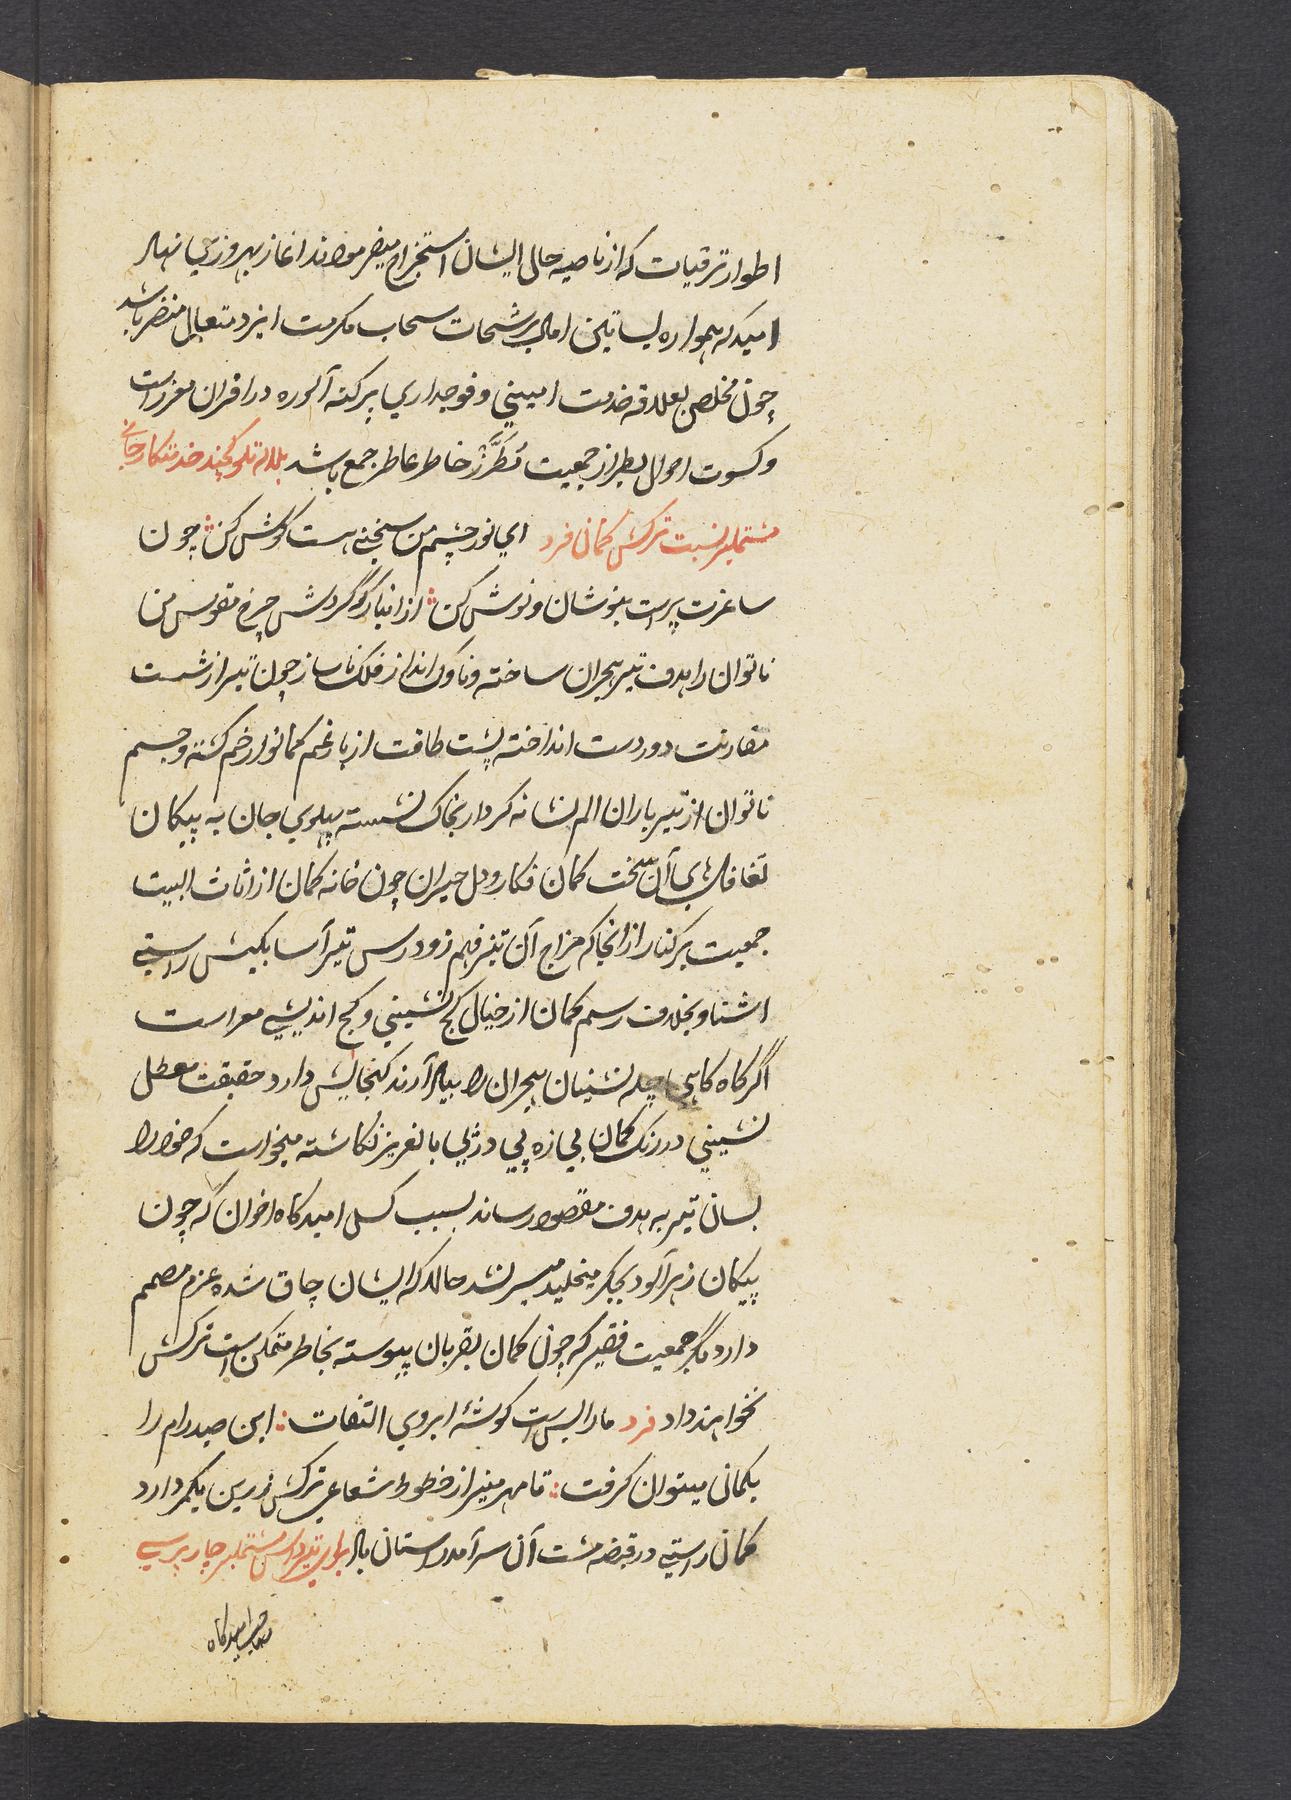 اطوار ترقیات که از ناصیه حال ایشان استخراج میفرمودند اغاز بهروزی نهال
امید که همواره بساتین امال برشحات سحاب مکرمت ایزد متعال منضر باشد
چون مخلص بعلاقه خدمت امینی و فوجداری پرکنه آلوره در اقران معزز است
و کسوت احوال بطراز جمعیت مُطَرَّز خاطر عاطر جمع باشد بلاله تلوکچند خدمتکار خانی
مشتملبر نسبت ترکش کمان فرد ای نور چشم من سخنی هست کوش کن چون
ساغرت پرست بنوشان و نوش کن از انبار کو کردش چرخ مقوس من
ناتوان را هدف تیر هجران ساخته و ناوک انداز فلک ناساز چون تیر از شست
مقارنت دور دست انداخته پشت طاقت از بار غم کمانوار خم کشته و جسم
ناتوان از تیر باران الم نشانه کردار بخاک نشسته پهلوی جان به پیکان
تغافلهای آن سخت کمان فکار و دل حیران چون خانه کمان از اثاث البیت
جمعیت بر کنار از انجا که مزاج آن تیز فهم زود رس تیر آسا بکیش راستی
اشنا و بخلاف رسم کمان از خیال کج نشینی و کج اندیشی معراست
اگر کاه کاهی چله نشینان هجران را بیاد آرند کنجایش دارد حقیقت معطل
نشینی در رنک کمان بی زه پی در پی بالغریز نکاشته میخواست که خود را
بسان تیر به هدف مقصود رساند بسبب کسل امیدکاه اخوان که چون
پیکان زهر آلود بجکر میخلید میسر نشد حالا که ایشان چاق شده عزم مصمم
دارد مکر جمعیت فقیر که چون کمان بقربان پیوسته بخاطر متمکن است ترکش
نخواهند داد فرد ما را بس است کوشهٔ ابروی التفات این صید رام را
بکمانی میتوان کرفت تا مهر منیر از خطوط شعاعی ترکش زرین بکمر دارد
کمان راستی در قبضه مشت آن سرآمد راستان باد مشتملبر چارپرسی
صاحب امیدکاه